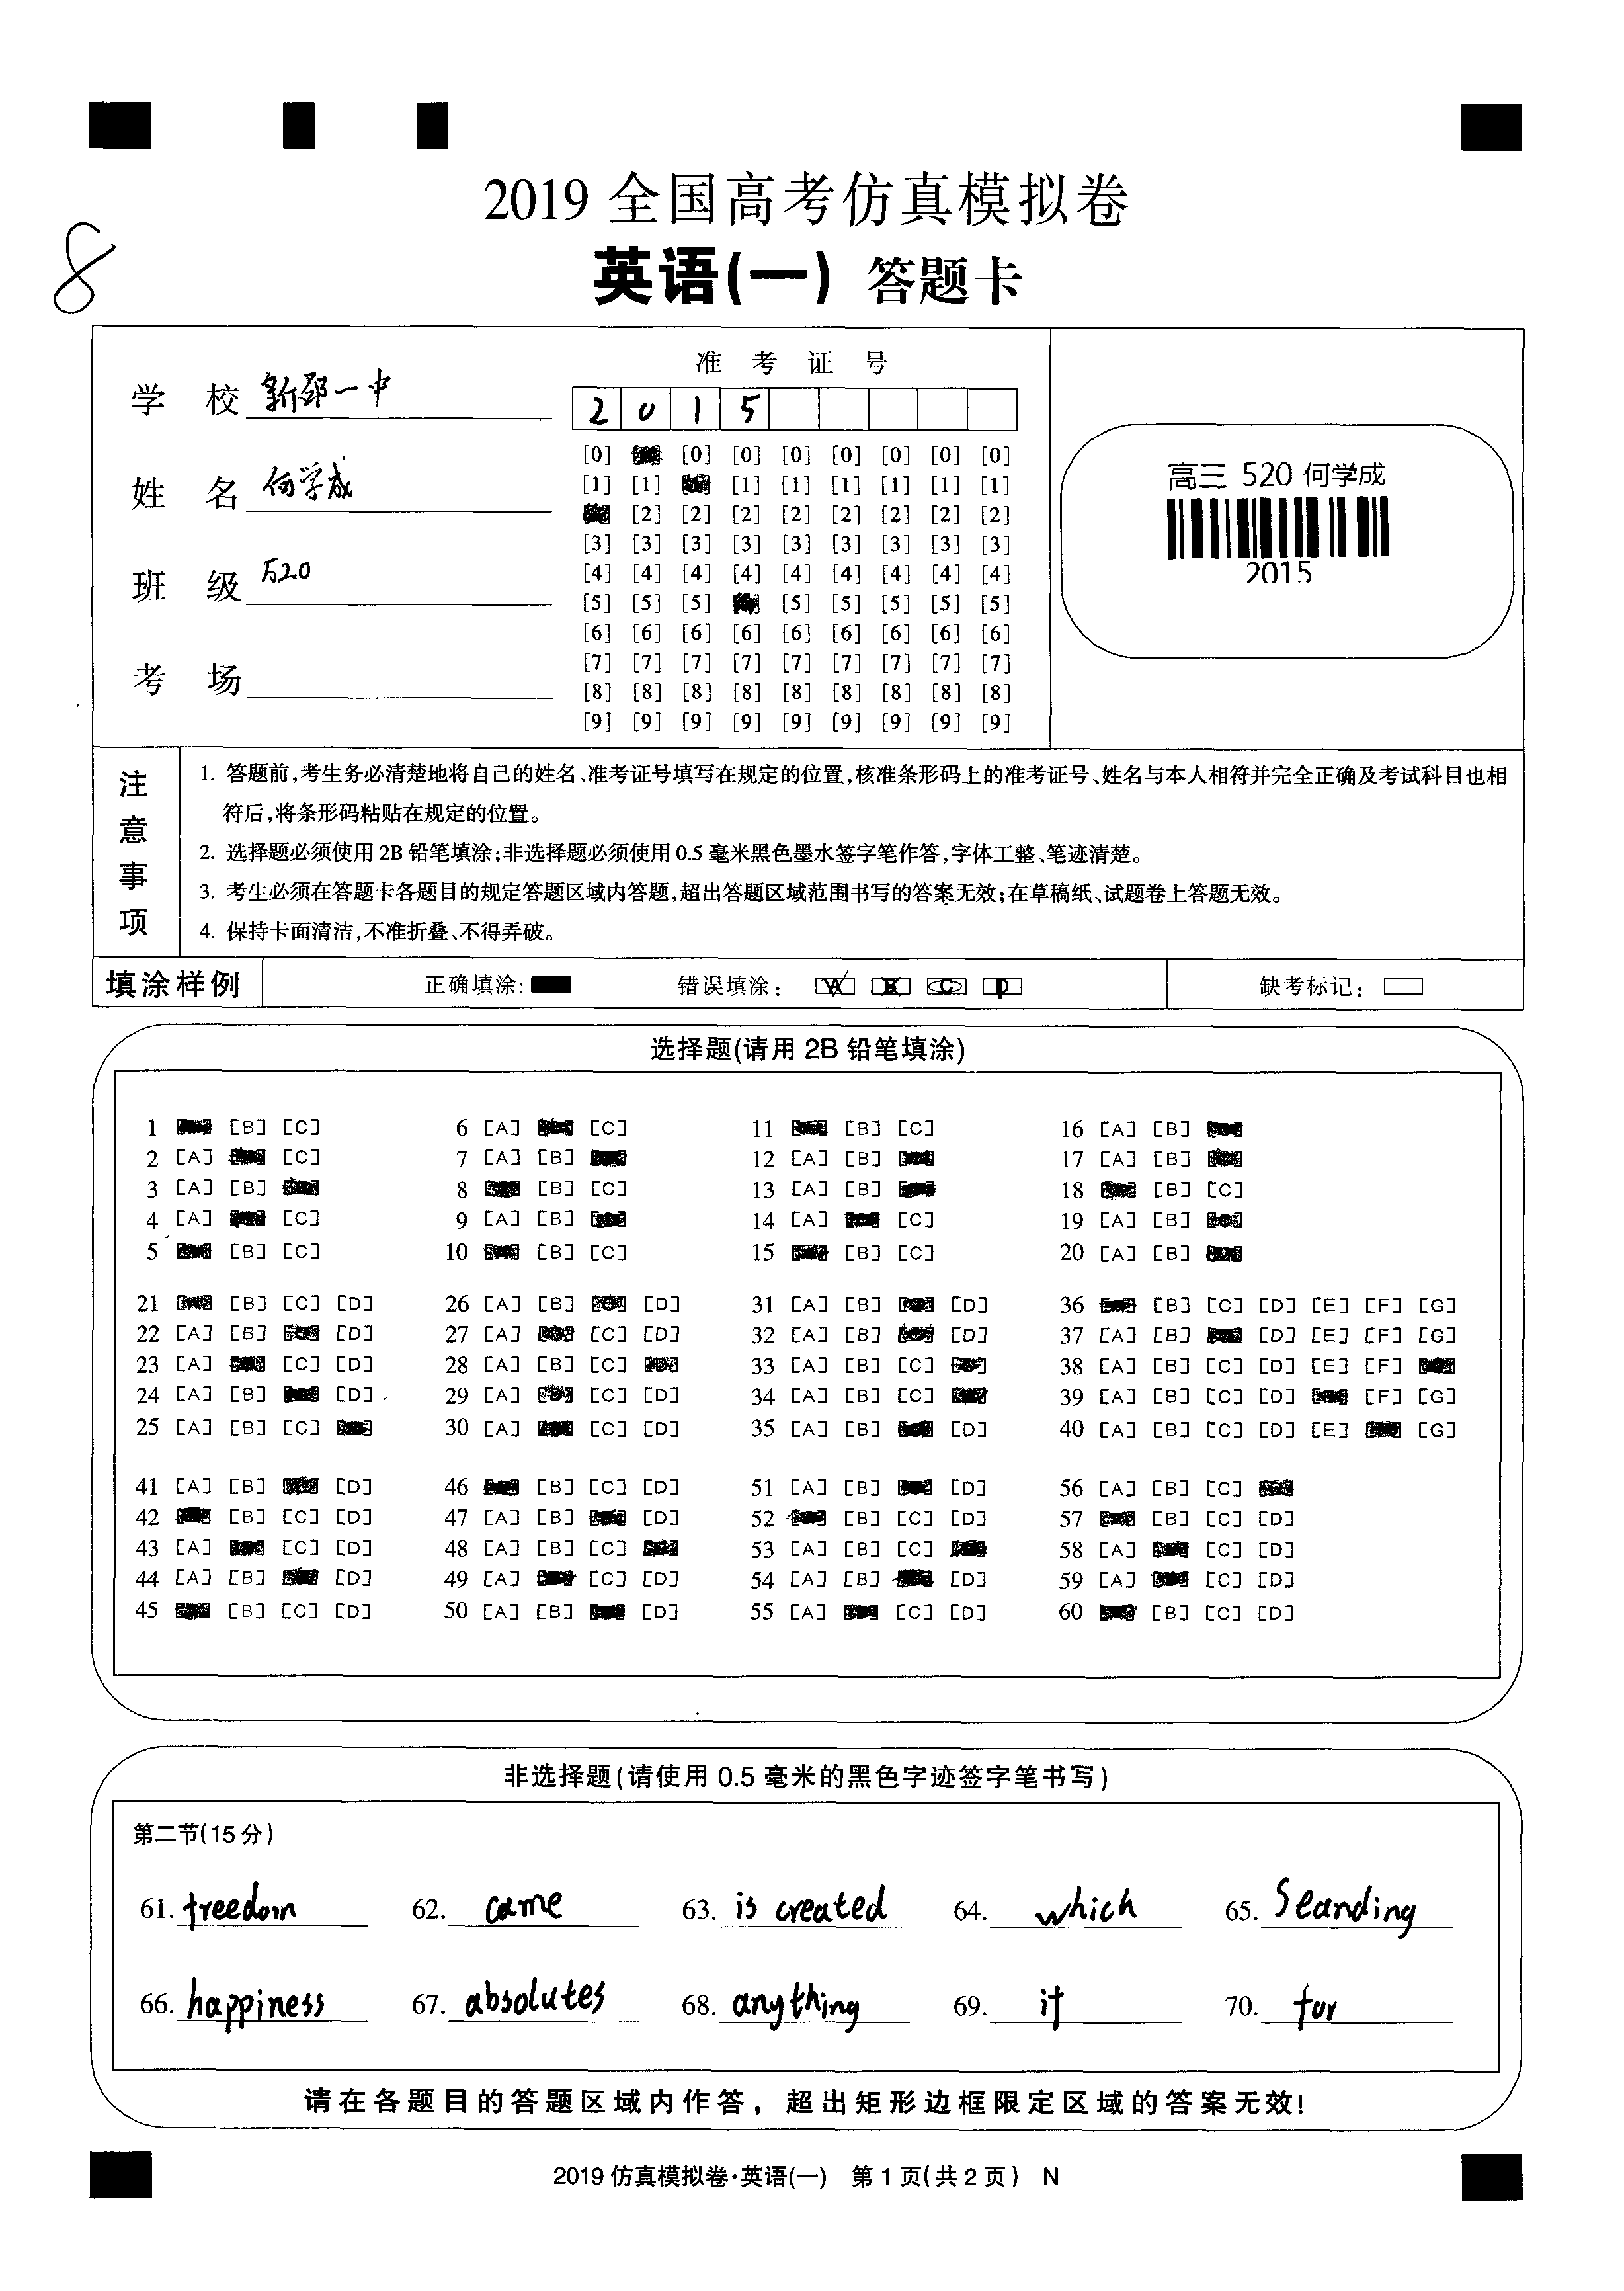 2019全国高考仿真模拟卷
8
英语(一) 答题卡
准考证号
学校 新邵一中
2 0 1 5
姓名 何学成
班级 520
考场
[0] [0] [0] [0] [0] [0] [0] [0]
[1] [1] [1] [1] [1] [1] [1] [1]
[2] [2] [2] [2] [2] [2] [2] [2]
[3] [3] [3] [3] [3] [3] [3] [3] [3]
[4] [4] [4] [4] [4] [4] [4] [4] [4]
[5] [5] [5] [5] [5] [5] [5] [5]
[6] [6] [6] [6] [6] [6] [6] [6] [6]
[7] [7] [7] [7] [7] [7] [7] [7] [7]
[8] [8] [8] [8] [8] [8] [8] [8] [8]
[9] [9] [9] [9] [9] [9] [9] [9] [9]
高三 520 何学成
2015
注意事项
1. 答题前,考生务必清楚地将自己的姓名、准考证号填写在规定的位置,核准条形码上的准考证号、姓名与本人相符并完全正确及考试科目也相
符后,将条形码粘贴在规定的位置。
2. 选择题必须使用2B铅笔填涂;非选择题必须使用0.5毫米黑色墨水签字笔作答,字体工整、笔迹清楚。
3. 考生必须在答题卡各题目的规定答题区域内答题,超出答题区域范围书写的答案无效;在草稿纸、试题卷上答题无效。
4. 保持卡面清洁,不准折叠、不得弄破。
填涂样例 正确填涂: 错误填涂: A B C D 缺考标记:
选择题(请用2B铅笔填涂)
1 [B] [C] 6 [A] [C] 11 [B] [C] 16 [A] [B]
2 [A] [C] 7 [A] [B] 12 [A] [B] 17 [A] [B]
3 [A] [B] 8 [B] [C] 13 [A] [B] 18 [B] [C]
4 [A] [C] 9 [A] [B] 14 [A] [C] 19 [A] [B]
5 [B] [C] 10 [B] [C] 15 [B] [C] 20 [A] [B]
21 [B] [C] [D] 26 [A] [B] [D] 31 [A] [B] [D] 36 [B] [C] [D] [E] [F] [G]
22 [A] [B] [D] 27 [A] [C] [D] 32 [A] [B] [D] 37 [A] [B] [D] [E] [F] [G]
23 [A] [C] [D] 28 [A] [B] [C] 33 [A] [B] [C] 38 [A] [B] [C] [D] [E] [F]
24 [A] [B] [D] 29 [A] [C] [D] 34 [A] [B] [C] 39 [A] [B] [C] [D] [F] [G]
25 [A] [B] [C] 30 [A] [C] [D] 35 [A] [B] [D] 40 [A] [B] [C] [D] [E] [G]
41 [A] [B] [D] 46 [B] [C] [D] 51 [A] [B] [D] 56 [A] [B] [C]
42 [B] [C] [D] 47 [A] [B] [D] 52 [B] [C] [D] 57 [B] [C] [D]
43 [A] [C] [D] 48 [A] [B] [C] 53 [A] [B] [C] 58 [A] [C] [D]
44 [A] [B] [D] 49 [A] [C] [D] 54 [A] [B] [D] 59 [A] [C] [D]
45 [B] [C] [D] 50 [A] [B] [D] 55 [A] [C] [D] 60 [B] [C] [D]
非选择题(请使用0.5毫米的黑色字迹签字笔书写)
第二节(15分)
61. freedom 62. came 63. is created 64. which 65. Standing
66. happiness 67. absolutes 68. anything 69. it 70. for
请在各题目的答题区域内作答，超出矩形边框限定区域的答案无效!
2019仿真模拟卷·英语(一) 第1页(共2页) N